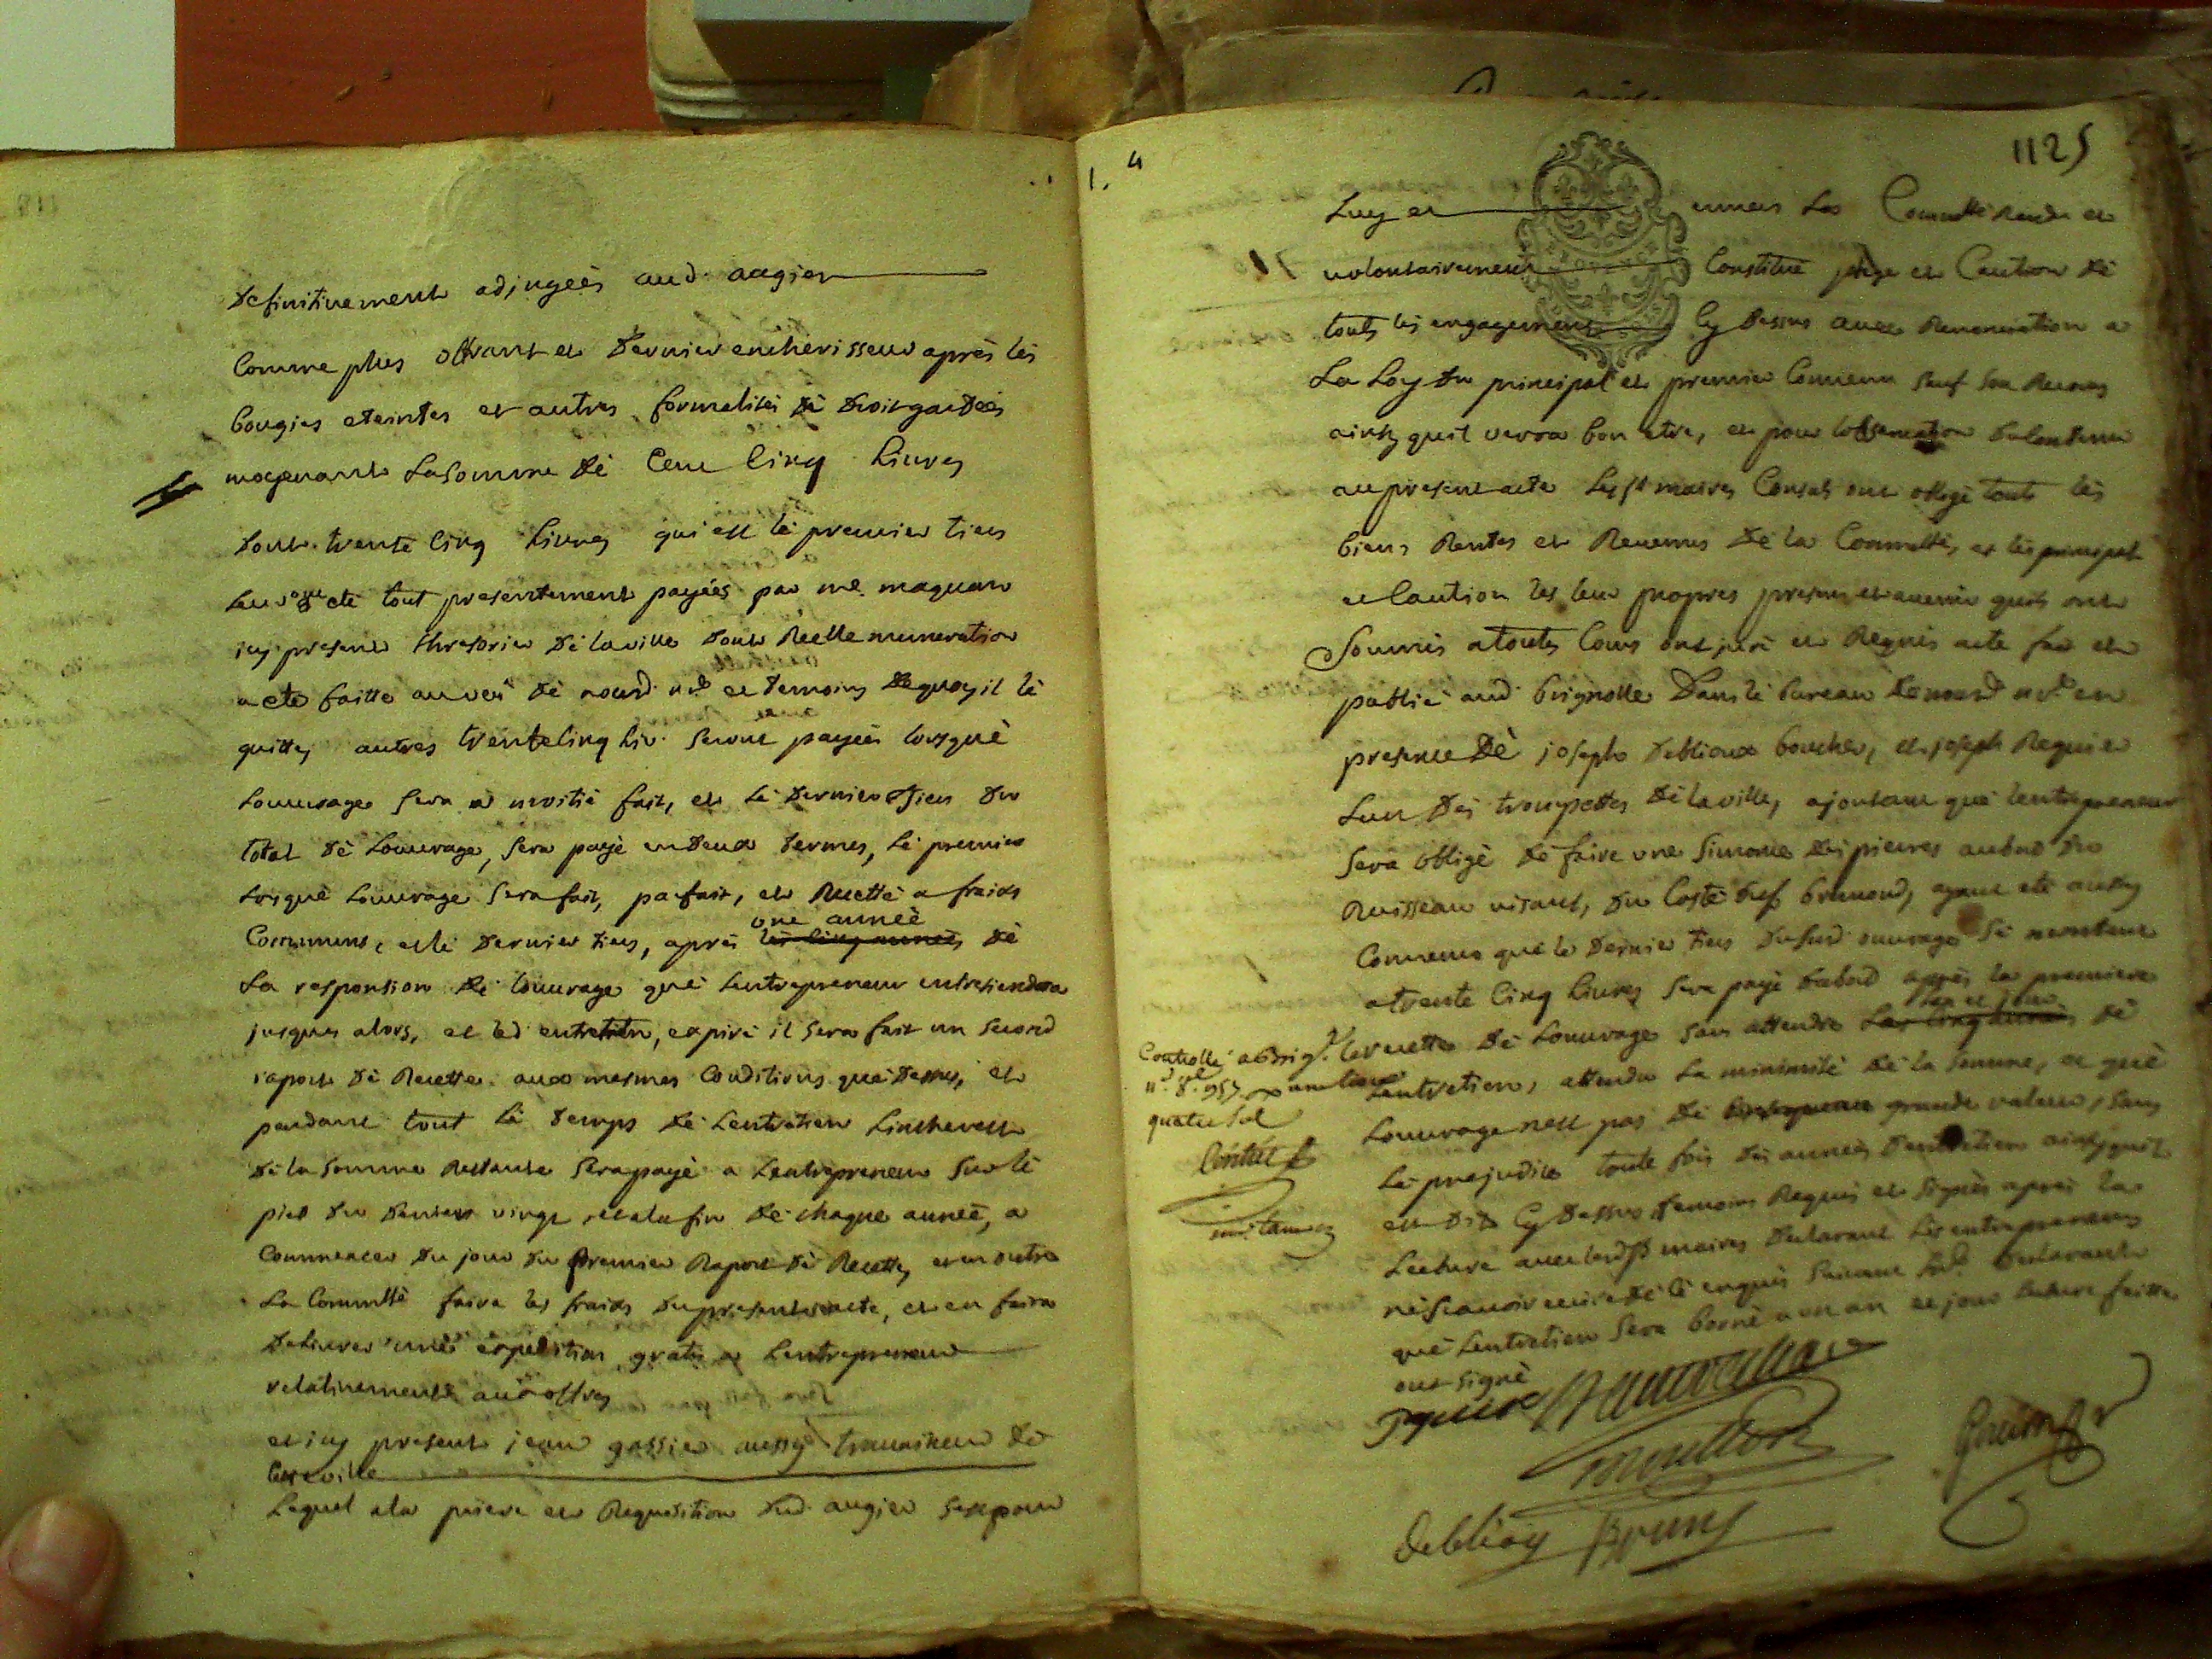 Definitivement adjugeès aud. augier
Comme plus offrant et Dernier encherisseur après les
bougies eteintes et autres formalités dè droit gardeès
moyenant La Somme dè Cent Cinq Livres
Dont trente Cinq Livres qui est lè premier tiers
Leur ont eté tout presentement payées par me. maquan
icy present thresorier dè la ville dont Reelle numeration
a eté faitte au veu dè nousd. nre et temoins dequoy il lè
quitte, autres trente Cinq Liv. Seront payeès lorsquè
Louvrage Sera a moitié fait, et Lè Dernier tiers du
total dè Louvrage, Sera payè en deux termes, Lè premier
Lorsquè Louvrage Sera fait, parfait, et Recetté a fraids
Communs, et lè Dernier tiers, après les Cinq années une anneè dè
La responsion dè Louvrage què Lentrepreneur entretiendra
jusques alors, et led. entretien, expiré il Sera fait un Second
raport dè Recette aux mesmes Conditions què Dessus, et
pendant tout Lè temps dè Lentretien Linthérest
dè la Somme Restante Sera payè a Lentrepreneur Sur lè
pied du Denier vingt, et a la fin dè chaque anneè, a
Commencer du jour du premier Raport dè Recette, et en outre
La Communtè faira les fraids du present acte, et en faira
Delivrer unè expedition gratis a Lentrepreneur
relativement aux offres
et icy present jean gassier aussy travailleur dè
Cette ville
Lequel a la prière et Requisition dud. augier Sest pour
1125
Luy et envers Lad. Communtè Rendu et
volontairement Constitué plege et Caution dè
touts les engagements Cy Dessus avec Renonciation a
La Loy du principal et premier Convenu Sauf Son Recours
ainsy quil verra bon etre, et pour lobservation du Contenu
au present acte Les srs maires Consuls ont obligè touts les
biens Rentes et Revenus dè la Communtè, et les principal
et Caution les leur propres presens et avenir quils ont
Soumis a toutes Cours ont juré et Requis acte fait et
publié aud. brignolle Dans lè bureau dè nousd. nre. en
presence dè joseph deblioux boucher, et joseph Requier
Lun des trompettes dè la ville, ajoutant què Lentrepreneur
Sera obligè dè faire une Simome des pierres au bord du
Ruisseau visant, du Costé du sr brunond, ayant eté aussy
Convenu què le Dernier tiers dususd. ouvrage Sè montant
a trente Cinq Livres Sera payè dabord après la premiere
recette dè Louvrage Sans attendre Les Cinq années Lan et jour dè
Lentretien, attendu La minimité dè la Somme, et què
Louvrage nest pas dè grande valeur, Sans
Lè prejudice toute fois des anneès dentretien ainsy quil
est dit Cy Dessus temoins Requis et Signès après La
Lecture avec lesd. srs maires Declarant Les entrepreneurs
nè Scavoir ecrire dè cè enquis Suivant Lord. Declarant
què Lentretien Sera borné a un an et jour Lecture faitte
ont Signé
Controllé a brig.
n. d. 1757
quatre Sol
debliou Brun